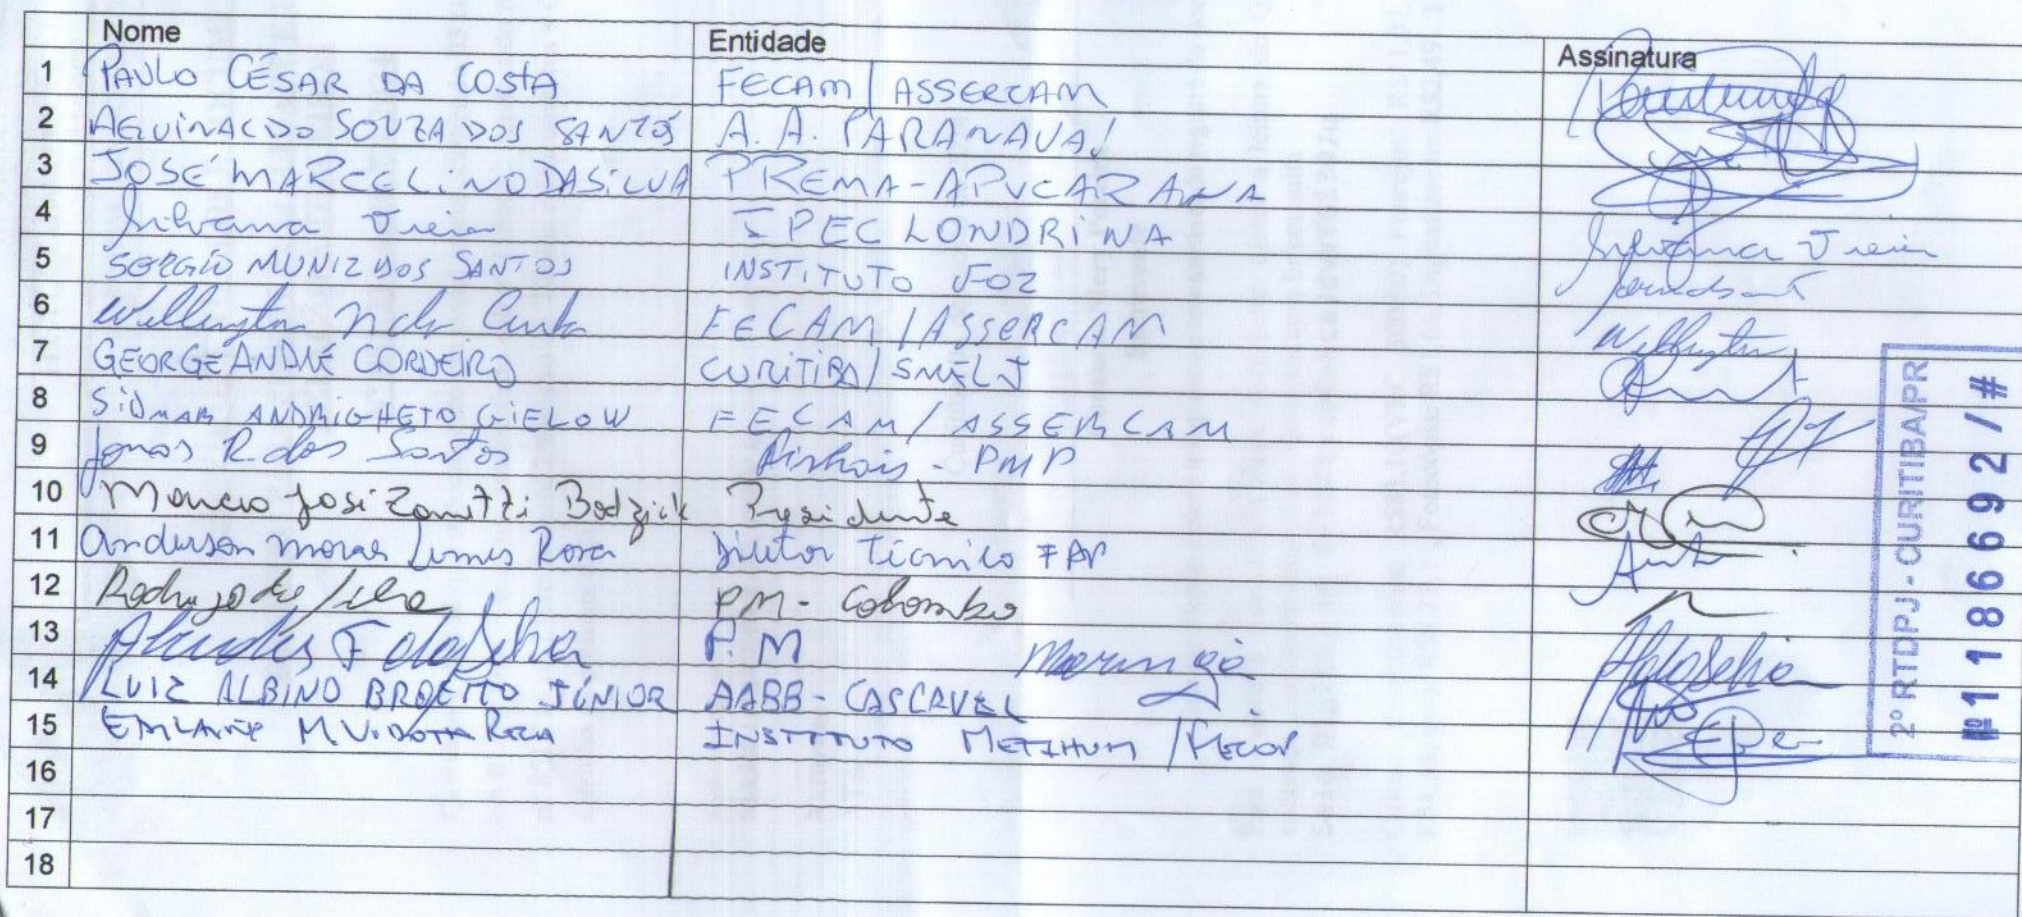 Nome Entidade Assinatura
1 PAULO CÉSAR DA COSTA FECAM / ASSERCAM
2 AGUINALDO SOUZA DOS SANTOS A. A. PARANAVAÍ
3 JOSÉ MARCELINO DA SILVA PREMA - APUCARANA
4 Silvana Vieira IPEC LONDRINA Silvana Vieira
5 SERGIO MUNIZ DOS SANTOS INSTITUTO FOZ
6 Wellington FECAM / ASSERCAM Wellington
7 GEORGE ANDRÉ CORDEIRO CURITIBA / SMELJ
8 SIDMAR ANDRIGHETO GIELOW FECAM / ASSERCAM
9 Jonas R dos Santos Pinhais - PMP
10 Marcio José Bodziak Presidente
11 Anderson Moraes Lemes Rosa Diretor Técnico FAP
12 Rodrigo da Silva PM - Colombo
13 F da Silva P. M Maringá
14 LUIZ ALBINO JÚNIOR AABB - CASCAVEL
15 M. INSTITUTO
16
17
18
2º RTDPJ - CURITIBA/PR
Nº 1186692/#